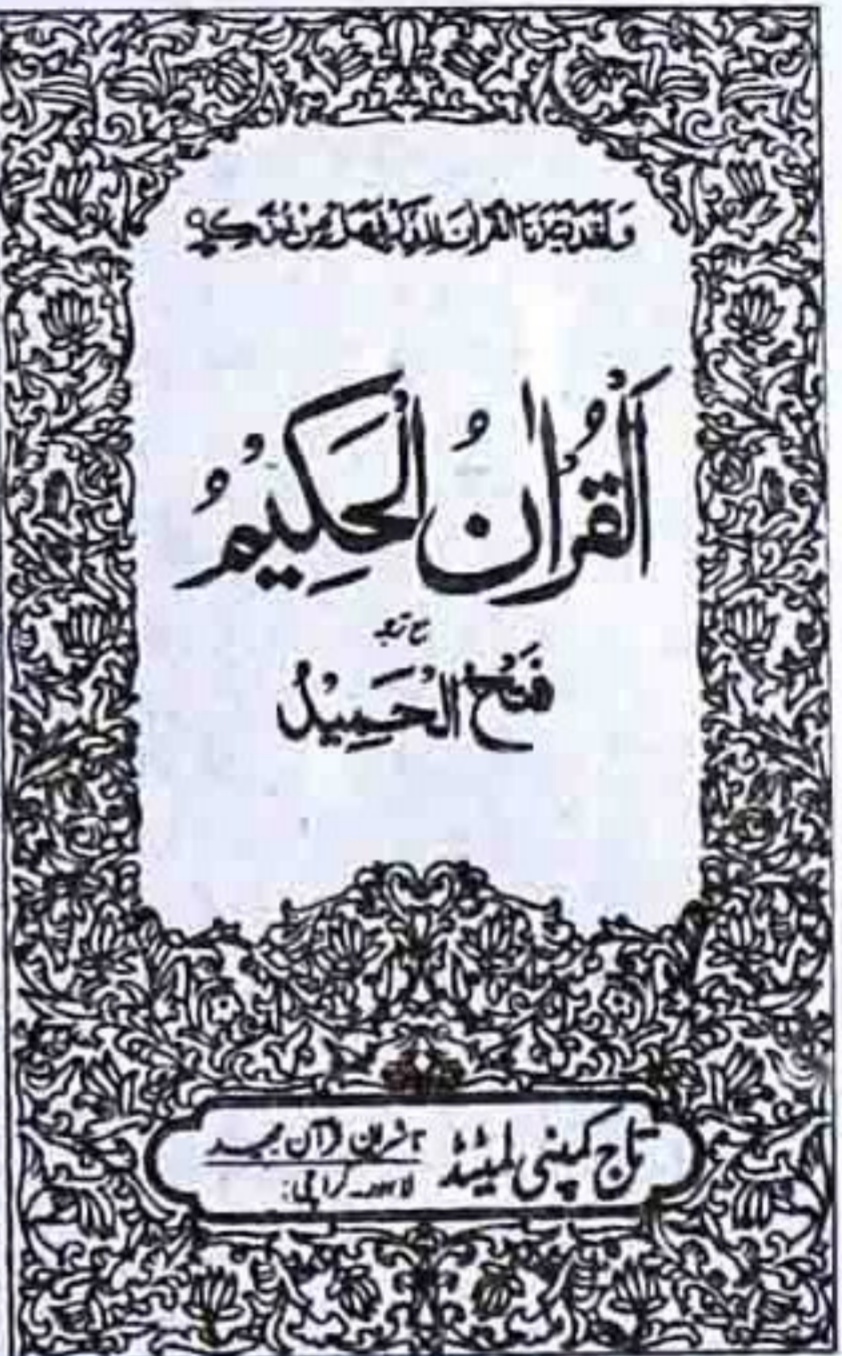 وَلَقَدْ يَسَّرْنَا الْقُرْآنَ لِلذِّكْرِ فَهَلْ مِنْ مُدَّكِرٍ
اَلْقُرْاٰنُ الْحَكِيْمُ
مع ترجمہ
فَتْحُ الْحَمِيْدُ
تاج کمپنی لمیٹڈ ناشران قرآن مجید
لاہور۔ کراچی: